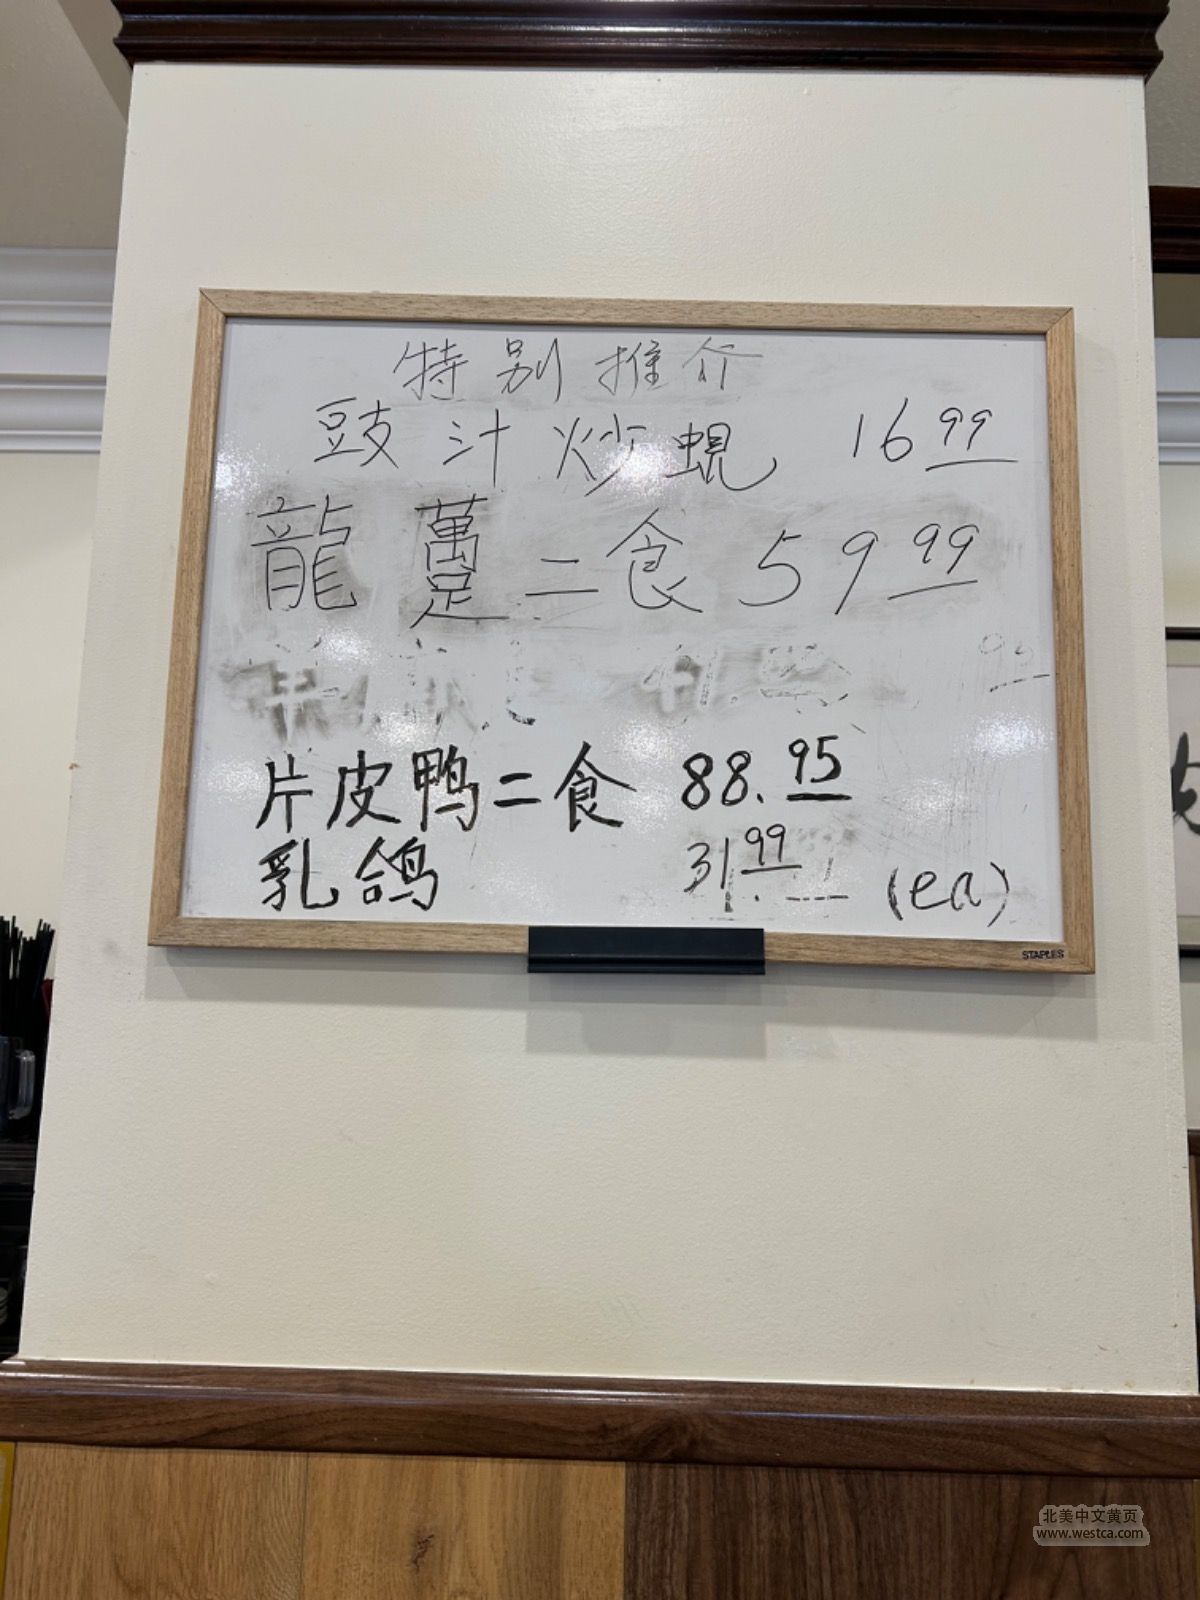 特别推介
豉汁炒蜆 16 99
龍躉二食 59 99
片皮鸭二食 88.95
乳鸽 31 99 (ea)
STAPLES
北美中文黄页
www.westca.com